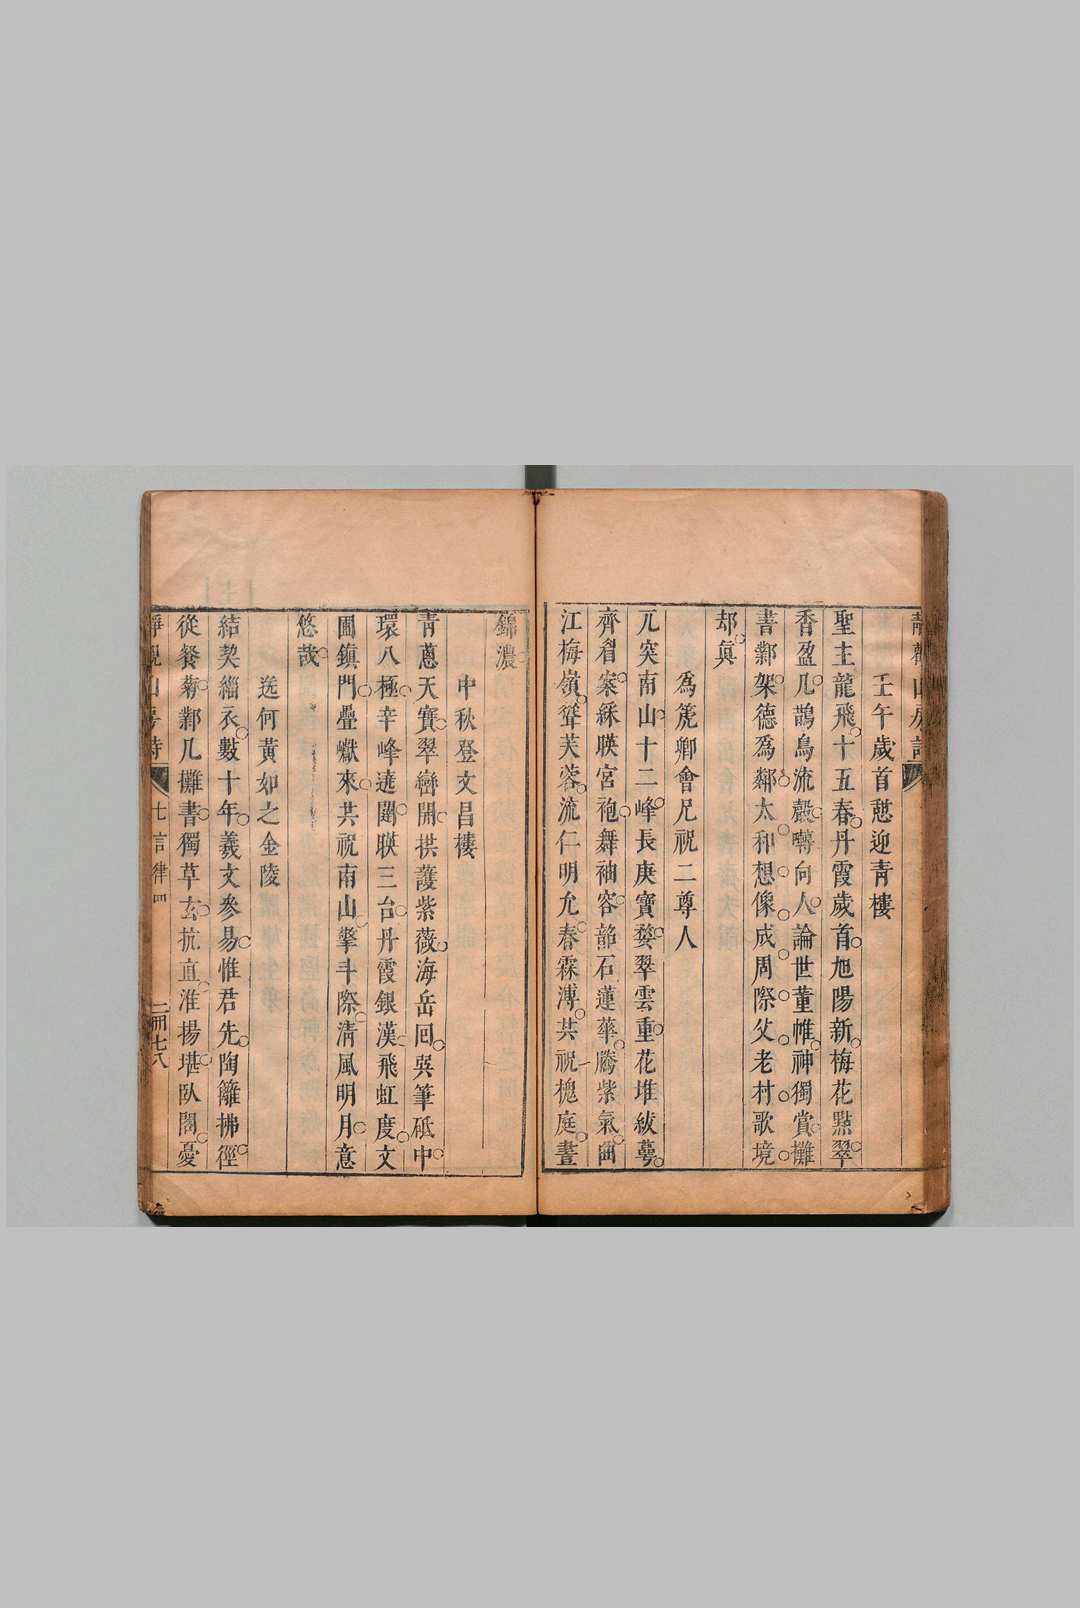 壬午歲首憇迎青樓
聖主龍飛十五春丹霞歲首旭陽新梅花點翠
香盈几鵲鳥流嚴囀向人論世董帷神獨賞攤
書鄴架德爲鄰太和想像成周際父老村歌境
却眞
爲箎卿會兄祝二尊人
兀突南山十二峰長庚寶婺翠雲重花堆紱蕚
齊眉案綵暎宮袍舞袖容韶石蓮華騰紫氣曲
江梅嶺聳芙蓉流仁明允春霖溥共祝槐庭晝
錦濃
中秋登文昌樓
青蔥天寶翠巒開拱護紫薇海岳囘吳筆砥中
環八極辛峰遶閣暎三台丹霞銀漢飛虹度文
圃鎮門疊巘來共祝南山擎斗際淸風明月意
悠哉
送何黃如之金陵
結契緇衣數十年羲文參易惟君先陶籬拂徑
從餐菊鄴几攤書獨草玄抗直淮揚堪臥閣憂
靜觀山房詩
七言律四
二冊七八